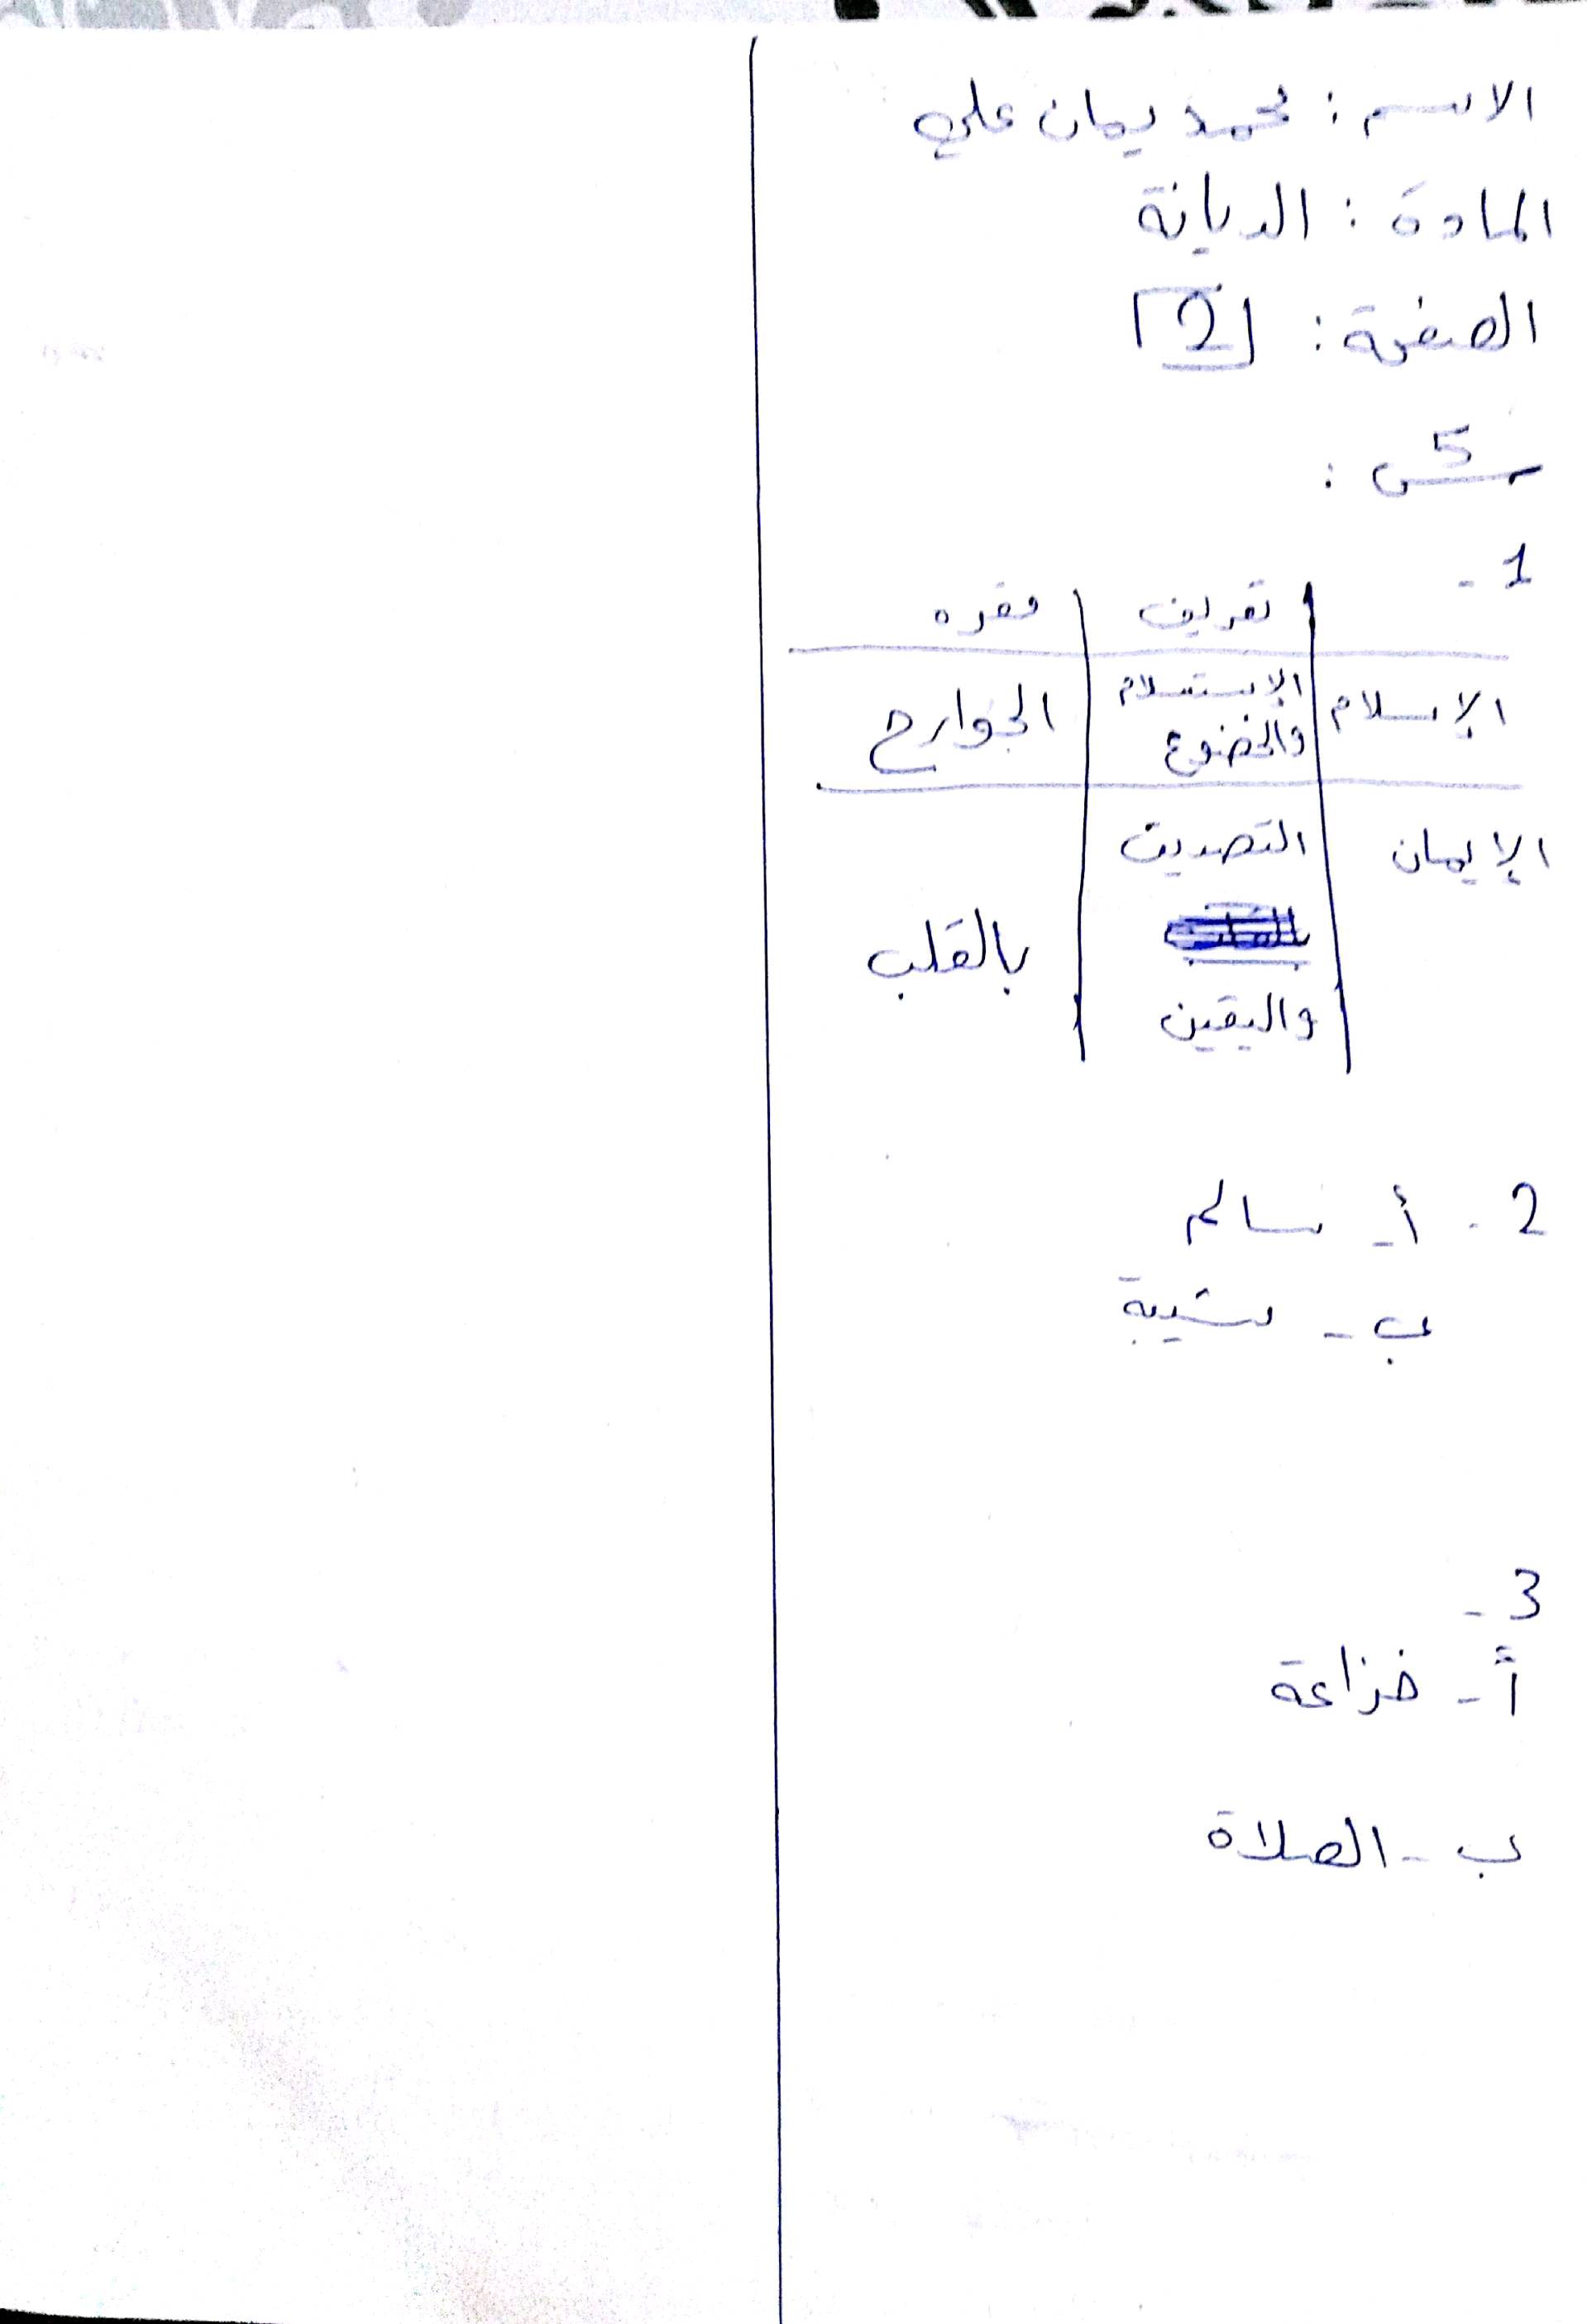 الاسم : محمد يمان علي
المادة : الديانة
الصفحة : [2]
س5 :
1 -
تعريف | مقره
الإسلام | الاستسلام والخضوع | الجوارح
الإيمان | التصديق واليقين | بالقلب
2 - أ - سالم
ب - شيبة
3 -
أ - خزاعة
ب - الصلاة